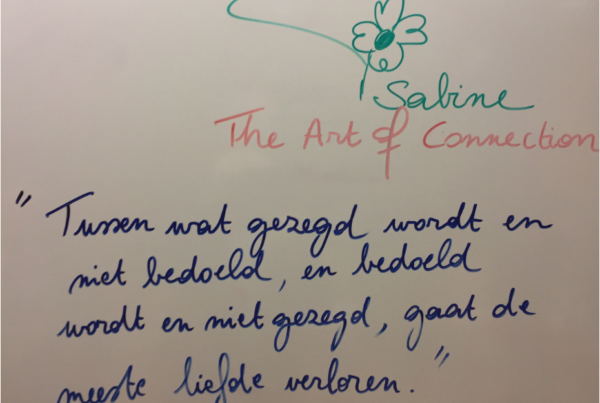 Sabine
The Art of Connection
" Tussen wat gezegd wordt en
niet bedoeld, en bedoeld
wordt en niet gezegd, gaat de
meeste liefde verloren. "